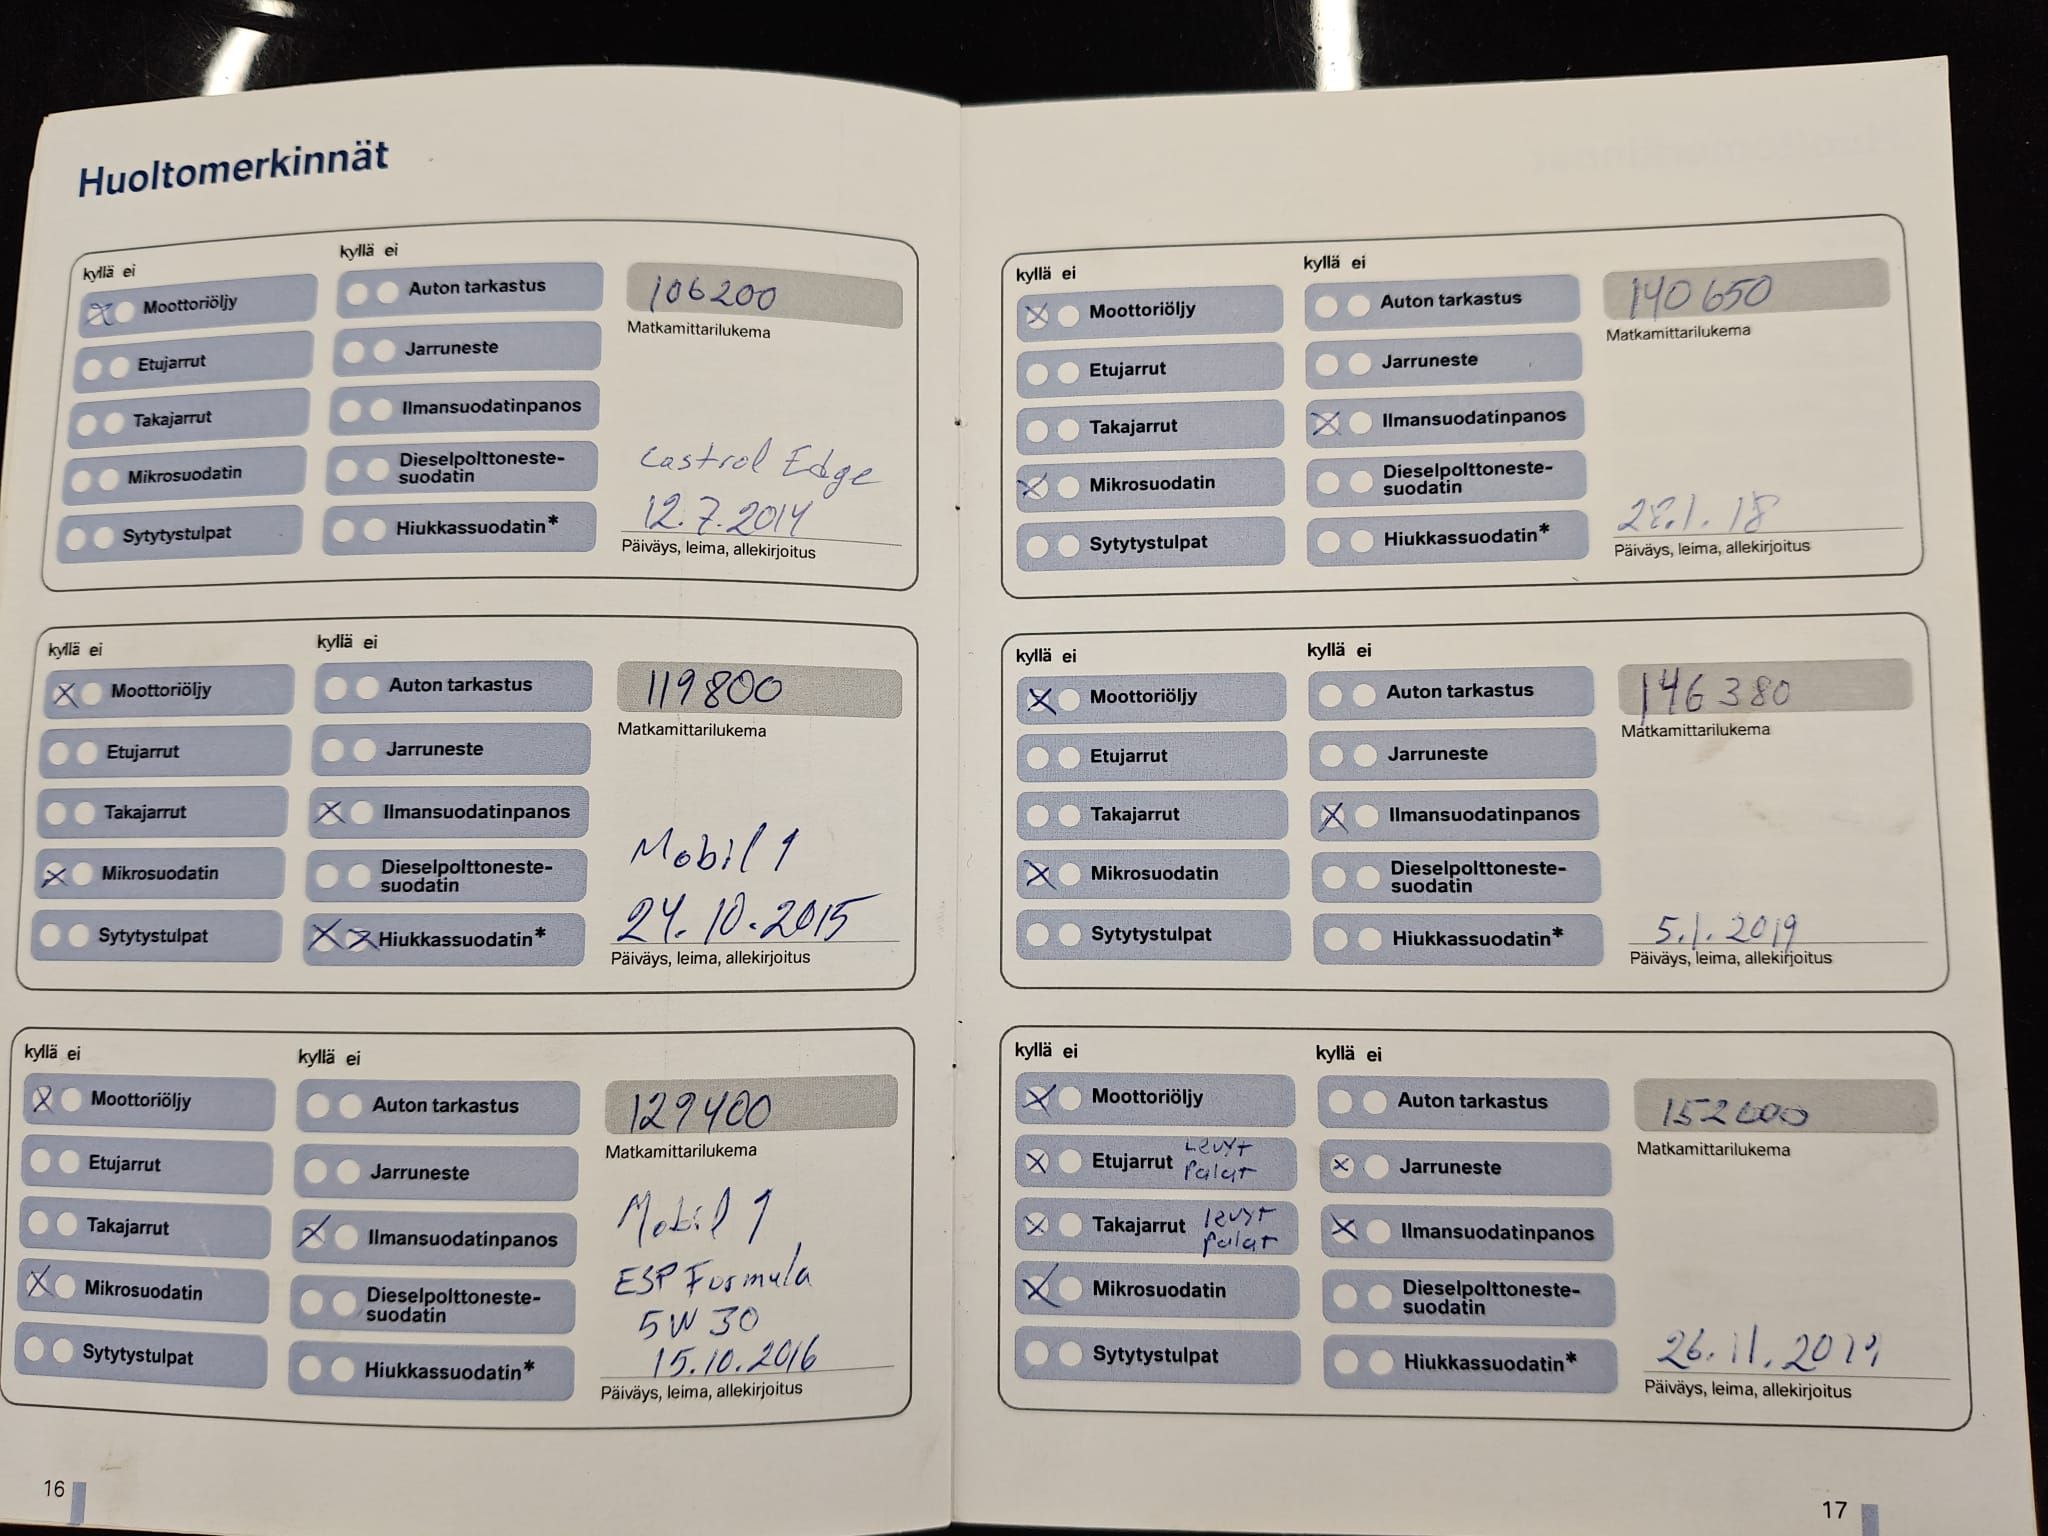 Huoltomerkinnät
kyllä ei
kyllä ei
Moottoriöljy
Etujarrut
Takajarrut
Mikrosuodatin
Sytytystulpat
Auton tarkastus
Jarruneste
Ilmansuodatinpanos
Dieselpolttoneste-
suodatin
Hiukkassuodatin*
106200
Matkamittarilukema
Castrol Edge
12.7.2014
Päiväys, leima, allekirjoitus
kyllä ei
kyllä ei
Moottoriöljy
Etujarrut
Takajarrut
Mikrosuodatin
Sytytystulpat
Auton tarkastus
Jarruneste
Ilmansuodatinpanos
Dieselpolttoneste-
suodatin
Hiukkassuodatin*
119800
Matkamittarilukema
Mobil 1
24.10.2015
Päiväys, leima, allekirjoitus
kyllä ei
kyllä ei
Moottoriöljy
Etujarrut
Takajarrut
Mikrosuodatin
Sytytystulpat
Auton tarkastus
Jarruneste
Ilmansuodatinpanos
Dieselpolttoneste-
suodatin
Hiukkassuodatin*
129400
Matkamittarilukema
Mobil 1
ESP Formula
5W 30
15.10.2016
Päiväys, leima, allekirjoitus
16
kyllä ei
kyllä ei
Moottoriöljy
Etujarrut
Takajarrut
Mikrosuodatin
Sytytystulpat
Auton tarkastus
Jarruneste
Ilmansuodatinpanos
Dieselpolttoneste-
suodatin
Hiukkassuodatin*
140650
Matkamittarilukema
28.1.18
Päiväys, leima, allekirjoitus
kyllä ei
kyllä ei
Moottoriöljy
Etujarrut
Takajarrut
Mikrosuodatin
Sytytystulpat
Auton tarkastus
Jarruneste
Ilmansuodatinpanos
Dieselpolttoneste-
suodatin
Hiukkassuodatin*
146380
Matkamittarilukema
5.1.2019
Päiväys, leima, allekirjoitus
kyllä ei
kyllä ei
Moottoriöljy
Etujarrut Levyt
Palat
Takajarrut levyt
palat
Mikrosuodatin
Sytytystulpat
Auton tarkastus
Jarruneste
Ilmansuodatinpanos
Dieselpolttoneste-
suodatin
Hiukkassuodatin*
152000
Matkamittarilukema
26.11.2019
Päiväys, leima, allekirjoitus
17